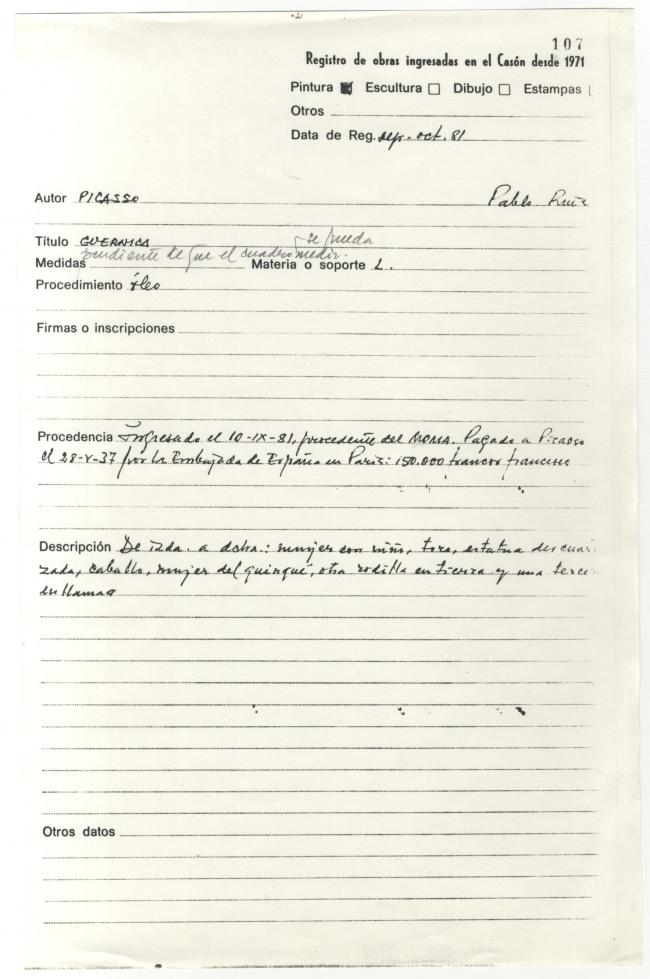 107
Registro de obras ingresadas en el Casón desde 1971
Pintura Escultura Dibujo Estampas
Otros
Data de Reg. sep.-oct. 81
Autor PICASSO Pablo Ruiz
Título GUERNICA se pueda
pendiente de que el cuadro medir.
Medidas Materia o soporte L.
Procedimiento óleo
Firmas o inscripciones
Procedencia Ingresado el 10-IX-81, procedente del MOMA. Pagado a Picasso
el 28-V-37 por la Embajada de España en París: 150.000 francos franceses
Descripción De izda. a dcha.: mujer con niño, toro, estatua descuarti
zada, caballo, mujer del quinqué, otra rodilla en tierra y una tercera
en llamas
Otros datos